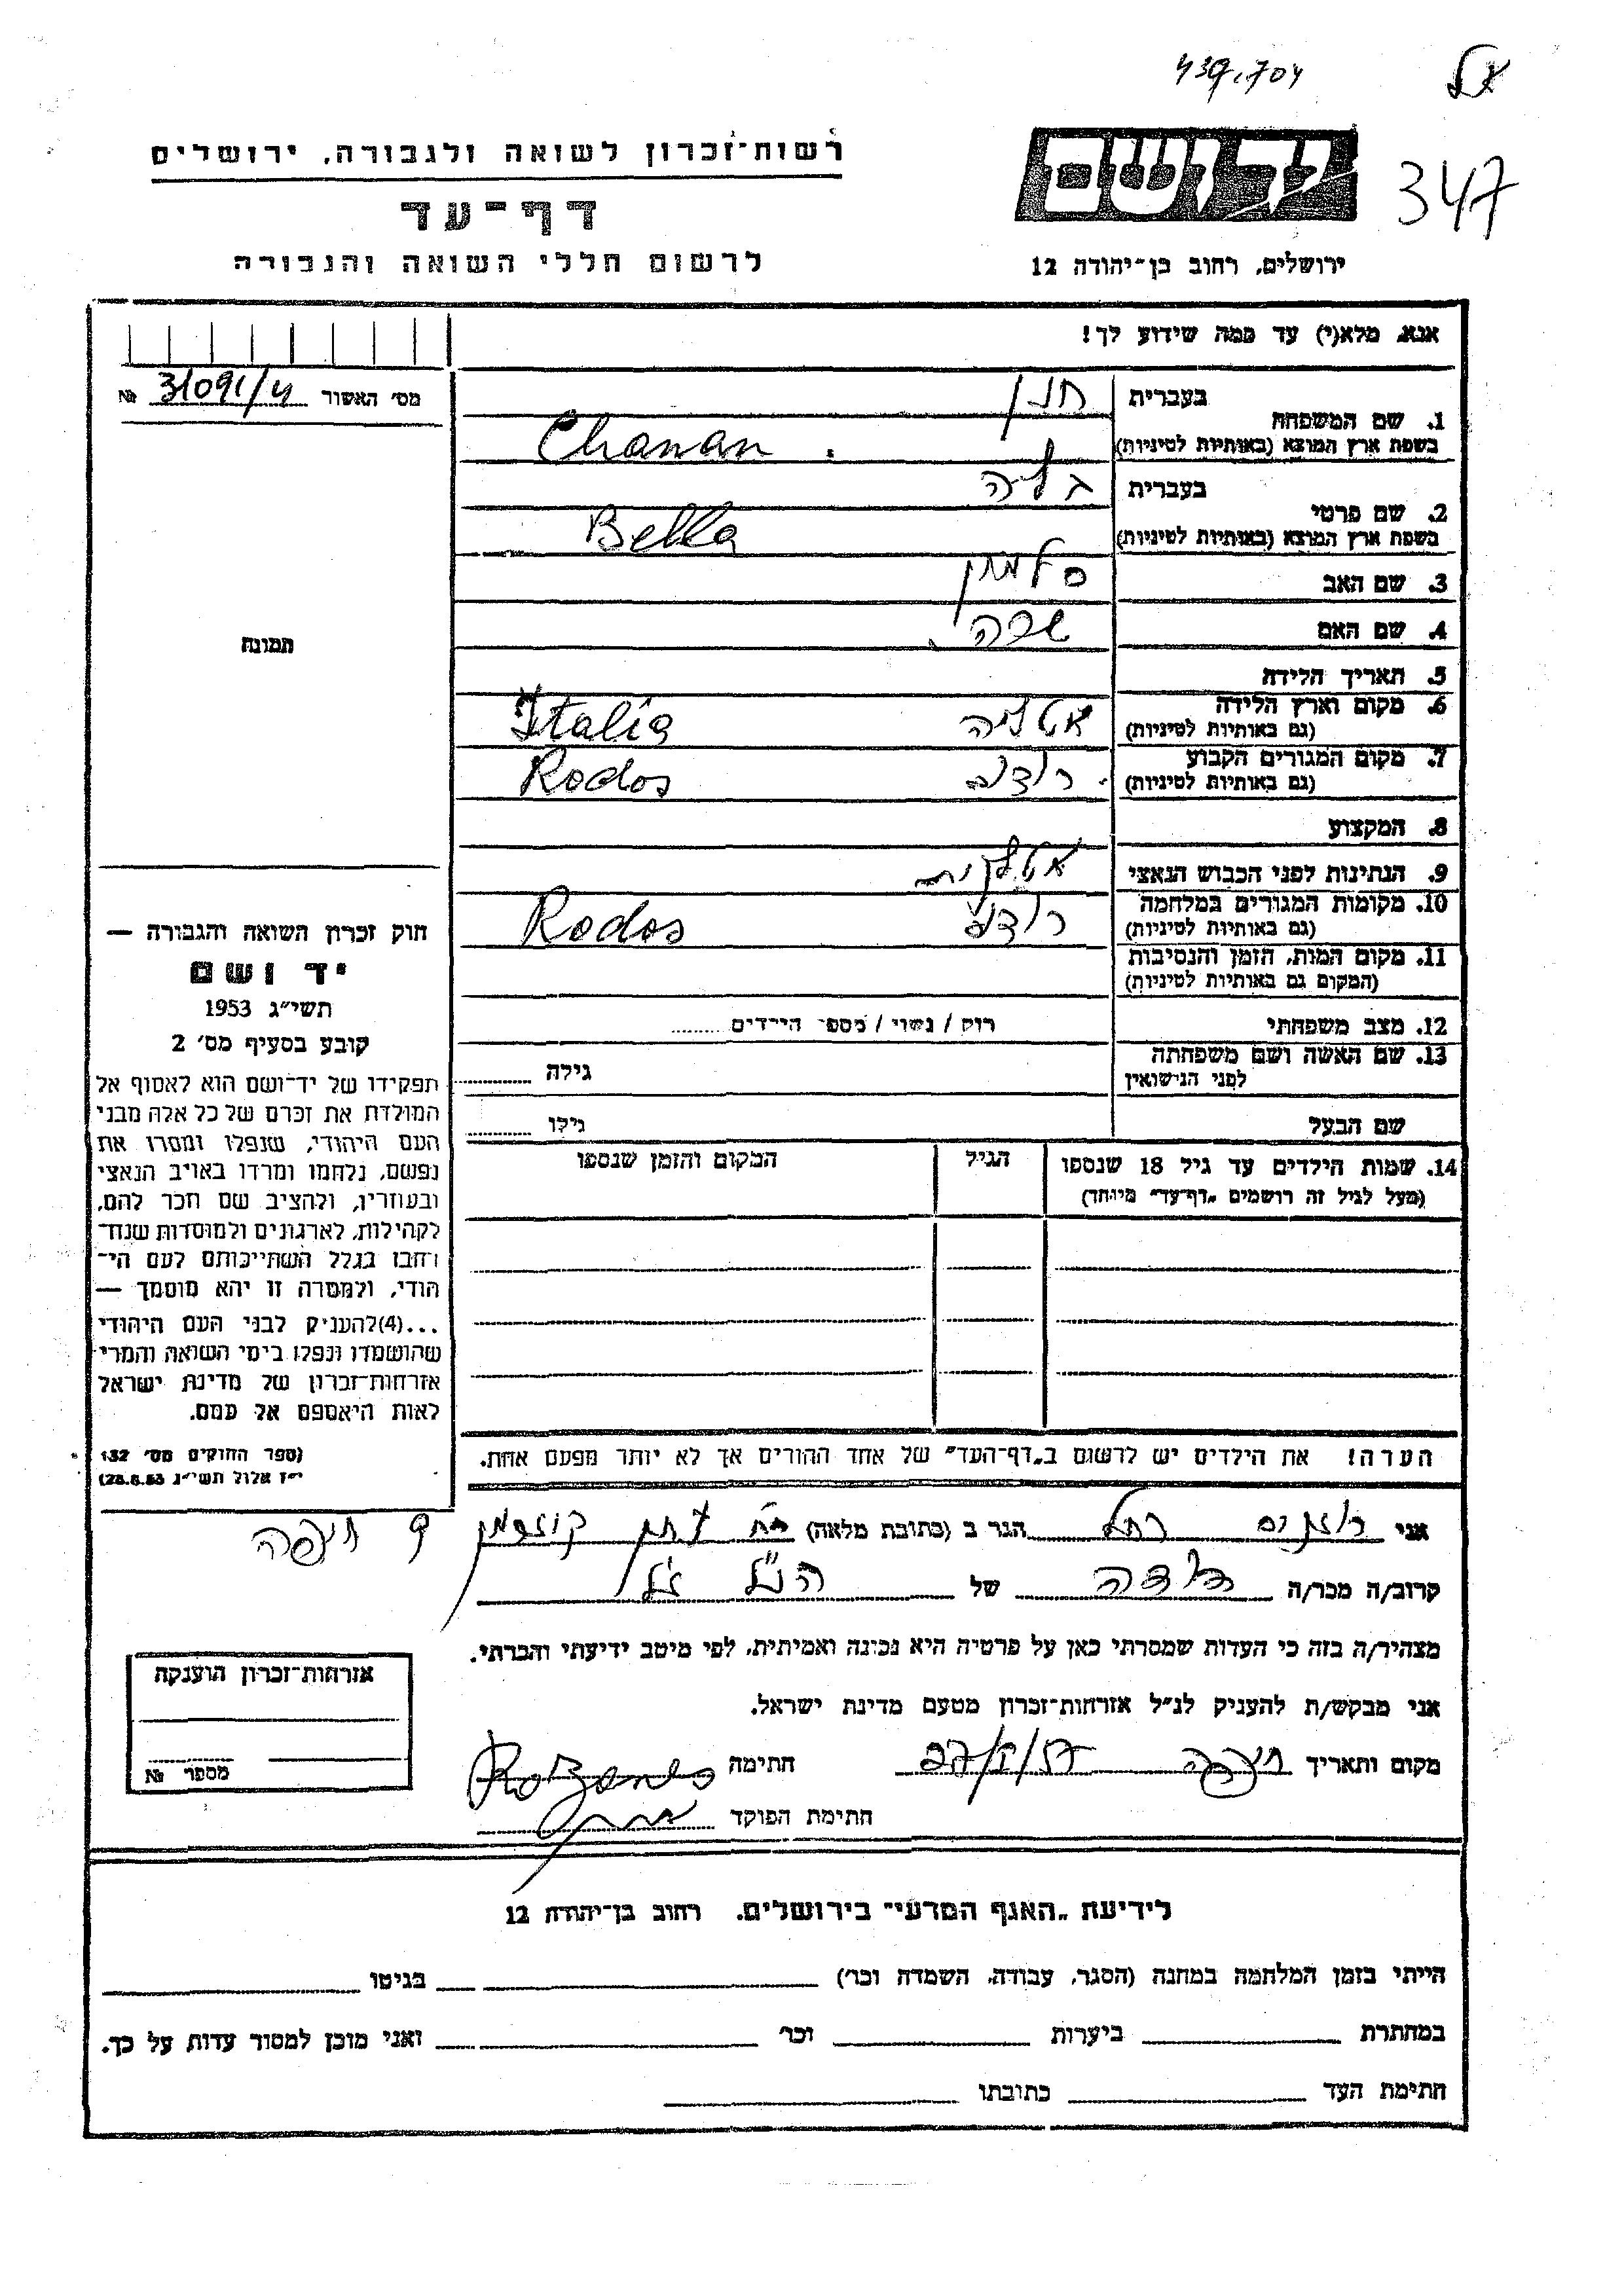 439.704
347
יד ושם
ירושלים, רחוב בן־יהודה 12
רשות־זכרון לשואה ולגבורה, ירושלים
דף־עד
לרשום חללי השואה והגבורה
אנא, מלא(י) עד כמה שידוע לך!
מס׳ האשור 31091/4 №
1. שם המשפחה
בעברית חנן
בשפת ארץ המוצא (באותיות לטיניות) Chanan.
2. שם פרטי
בעברית בליה
בשפת ארץ המוצא (באותיות לטיניות) Bella
3. שם האב סלמון
4. שם האם שרה
5. תאריך הלידה
6. מקום וארץ הלידה
(גם באותיות לטיניות) איטליה Italia
7. מקום המגורים הקבוע
(גם באותיות לטיניות) רודוס Rodos
8. המקצוע
9. הנתינות לפני הכבוש הנאצי איטלקית
10. מקומות המגורים במלחמה
(גם באותיות לטיניות) רודוס Rodos
11. מקום המות, הזמן והנסיבות
(המקום גם באותיות לטיניות)
12. מצב משפחתי רוק / נשוי / מספר הילדים ........
13. שם האשה ושם משפחתה
לפני הנישואין גילה
שם הבעל גילו
14. שמות הילדים עד גיל 18 שנספו
(מעל לגיל זה רושמים „דף־עד״ מיוחד)
הגיל
המקום והזמן שנספו
הערה! את הילדים יש לרשום ב„דף־העד״ של אחד ההורים אך לא יותר מפעם אחת.
תמונה
חוק זכרון השואה והגבורה —
יד ושם
תשי״ג 1953
קובע בסעיף מס׳ 2
תפקידו של יד־ושם הוא לאסוף אל
המולדת את זכרם של כל אלה מבני
העם היהודי, שנפלו ומסרו את
נפשם, נלחמו ומרדו באויב הנאצי
ובעוזריו, ולהציב שם וזכר להם,
לקהילות, לארגונים ולמוסדות שנח־
רבו בגלל השתייכותם לעם הי־
הודי, ולמטרה זו יהא מוסמך —
...(4)להעניק לבני העם היהודי
שהושמדו ונפלו בימי השואה והמרי
אזרחות־זכרון של מדינת ישראל
לאות היאספם אל עמם.
(ספר החוקים מס׳ 132
י״ז אלול תשי״ג 28.8.53)
אני רוזנים רחל הגר ב (כתובת מלאה) 9 חיפה
קרוב/ה מכר/ה דודה של הנ״ל
מצהיר/ה בזה כי העדות שמסרתי כאן על פרטיה היא נכונה ואמיתית, לפי מיטב ידיעתי והכרתי.
אני מבקש/ת להעניק לנ״ל אזרחות־זכרון מטעם מדינת ישראל.
מקום ותאריך חיפה 27/ /57 חתימה Rozanes
חתימת הפוקד
אזרחות־זכרון הוענקה
מספר №
לידיעת „האגף המדעי״ בירושלים. רחוב בן־יהודה 12
הייתי בזמן המלחמה במחנה (הסגר, עבודה, השמדה וכר׳) בגיטו
במחתרת ביערות וכר׳ ואני מוכן למסור עדות על כך.
חתימת העד כתובתו